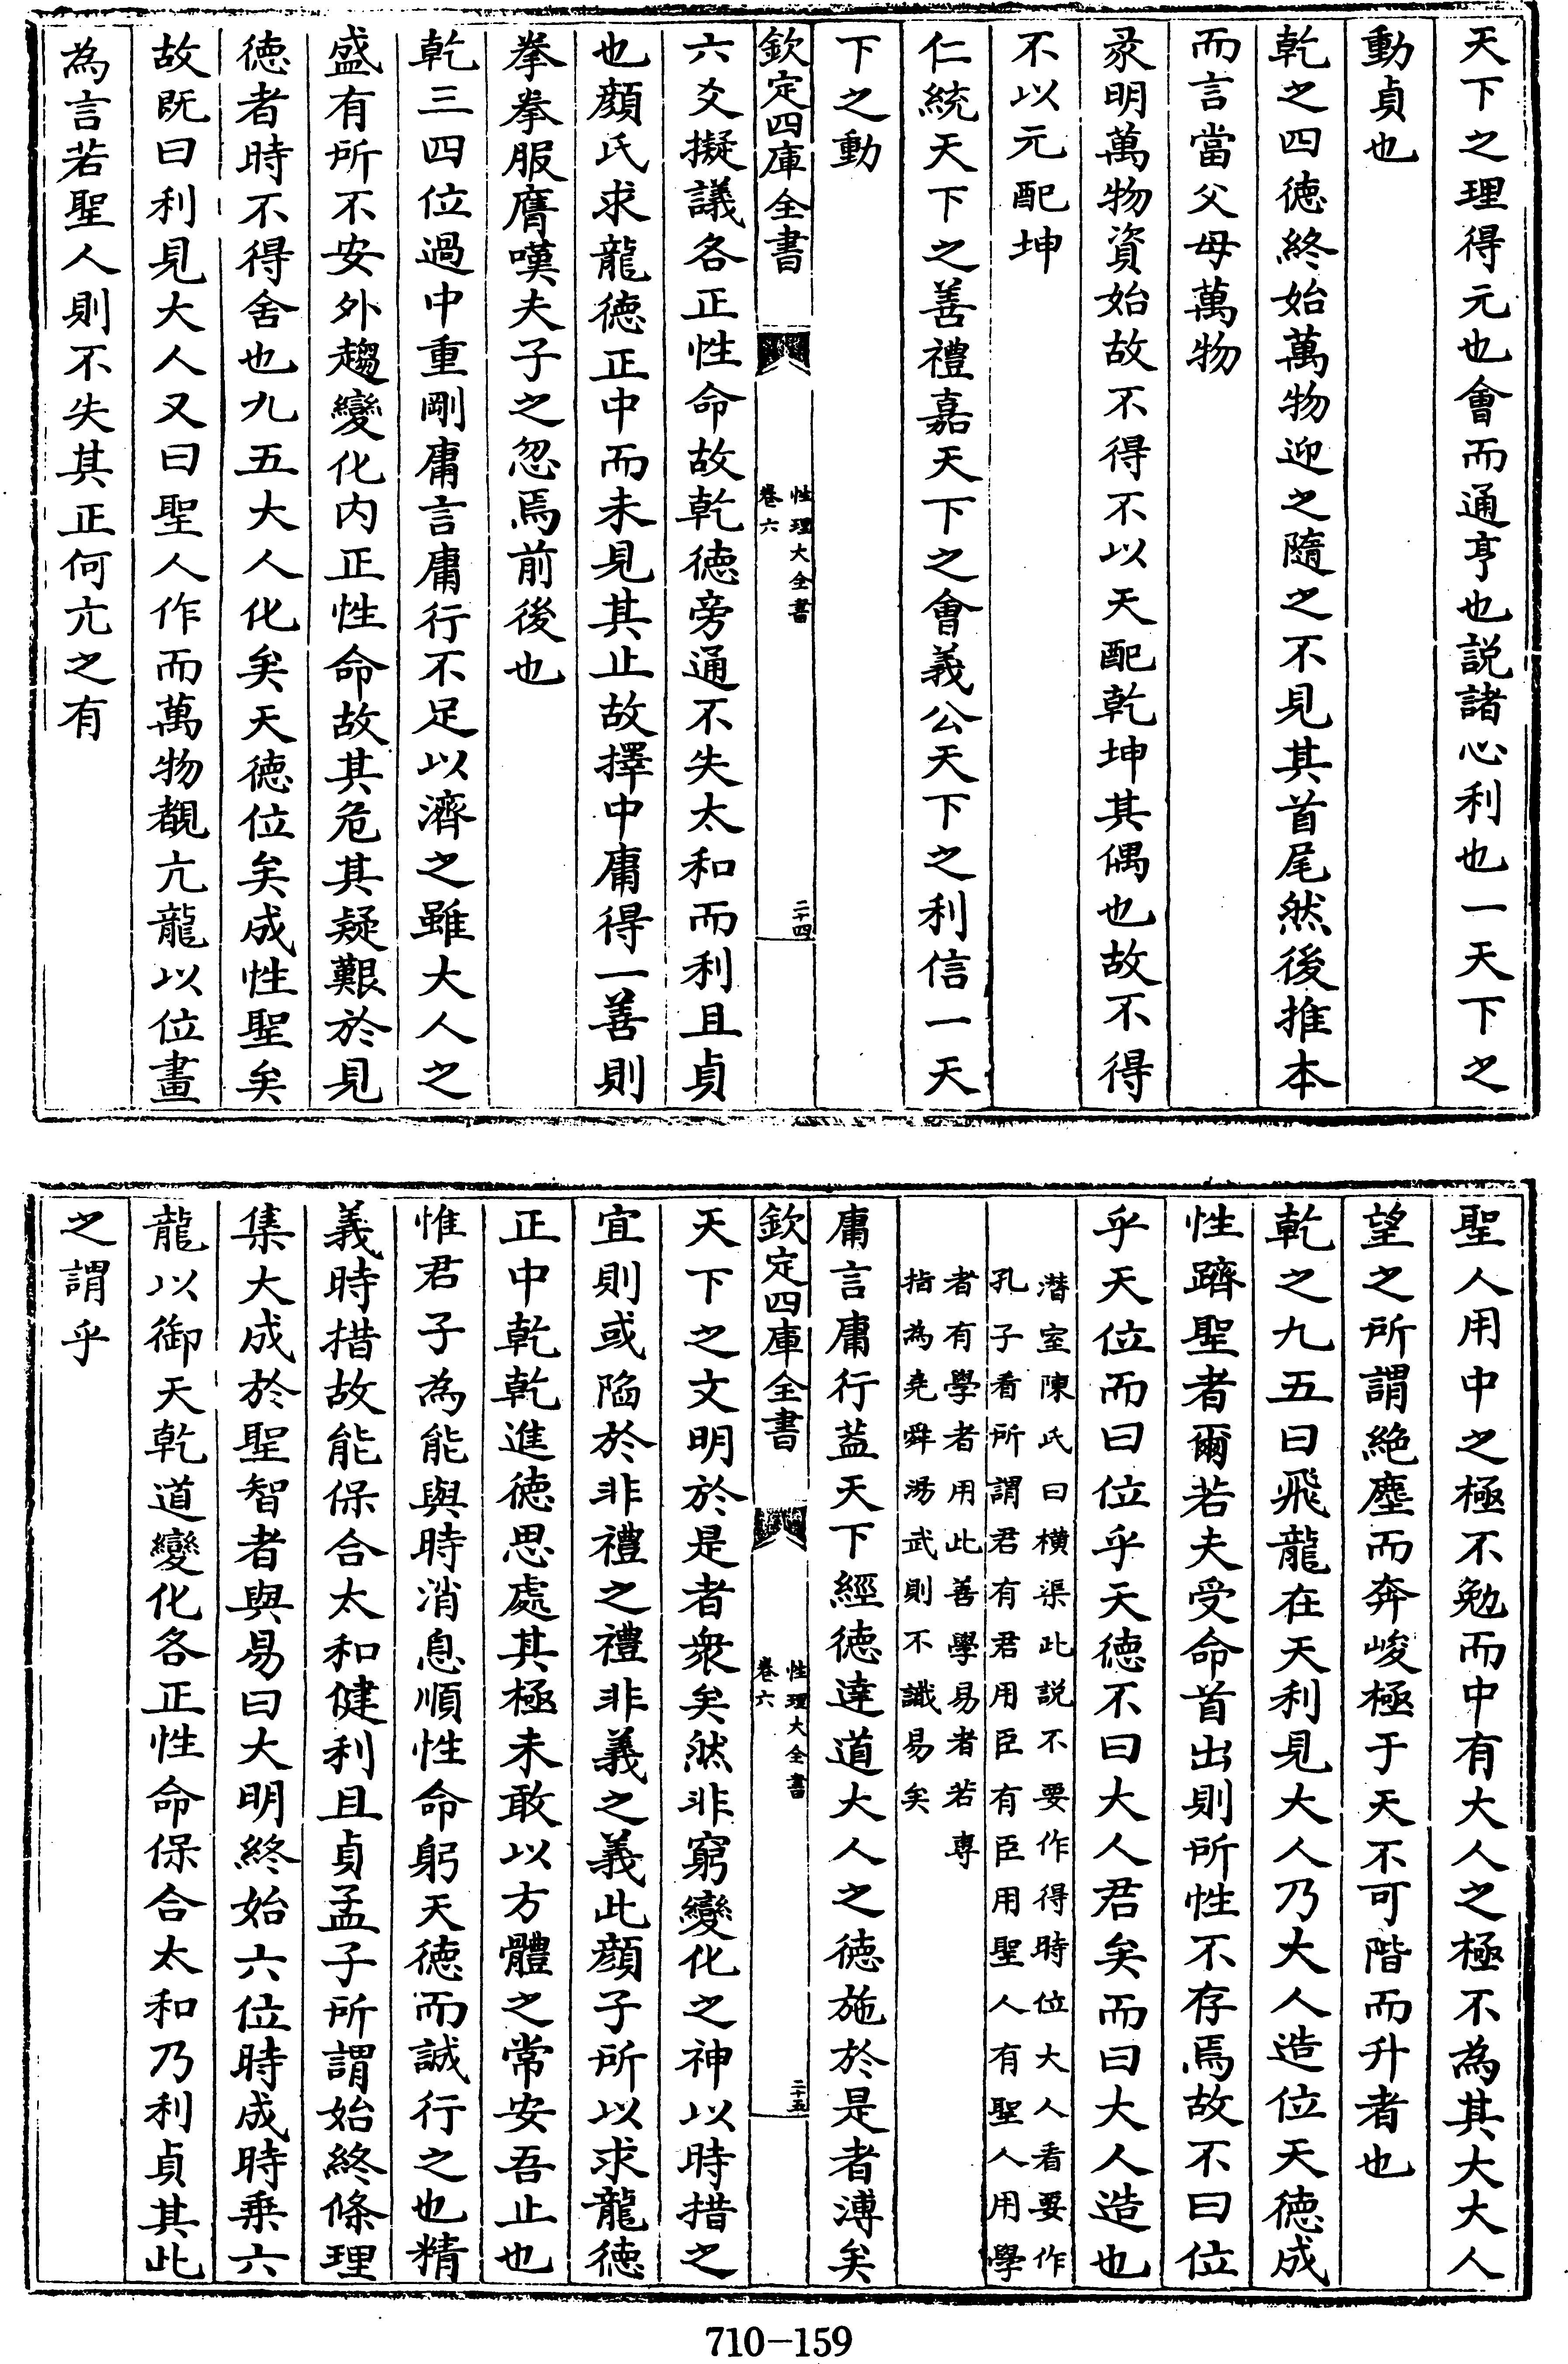 天下之理得元也會而通亨也説諸心利也一天下之
動貞也
乾之四徳終始萬物迎之隨之不見其首尾然後推本
而言當父母萬物
彖明萬物資始故不得不以天配乾坤其偶也故不得
不以元配坤
仁統天下之善禮嘉天下之會義公天下之利信一天
下之動
欽定四庫全書
性理大全書
卷六
二十四
六爻擬議各正性命故乾徳旁通不失太和而利且貞
也顔氏求龍徳正中而未見其止故擇中庸得一善則
拳拳服膺嘆夫子之忽焉前後也
乾三四位過中重剛庸言庸行不足以濟之雖大人之
盛有所不安外趨變化内正性命故其危其疑艱於見
徳者時不得舍也九五大人化矣天徳位矣成性聖矣
故既曰利見大人又曰聖人作而萬物覩亢龍以位畫
為言若聖人則不失其正何亢之有
聖人用中之極不勉而中有大人之極不為其大大人
望之所謂絶塵而奔峻極于天不可階而升者也
乾之九五曰飛龍在天利見大人乃大人造位天徳成
性躋聖者爾若夫受命首出則所性不存焉故不曰位
乎天位而曰位乎天徳不曰大人君矣而曰大人造也
潛室陳氏曰横渠此説不要作得時位大人看要作
孔子看所謂君有君用臣有臣用聖人有聖人用學
者有學者用此善學易者若專
指為堯舜湯武則不識易矣
庸言庸行蓋天下經徳達道大人之徳施於是者溥矣
欽定四庫全書
性理大全書
卷六
二十五
天下之文明於是者衆矣然非窮變化之神以時措之
宜則或陷於非禮之禮非義之義此顔子所以求龍徳
正中乾乾進徳思處其極未敢以方體之常安吾止也
惟君子為能與時消息順性命躬天徳而誠行之也精
義時措故能保合太和健利且貞孟子所謂始終條理
集大成於聖智者與易曰大明終始六位時成時乘六
龍以御天乾道變化各正性命保合太和乃利貞其此
之謂乎
710-159